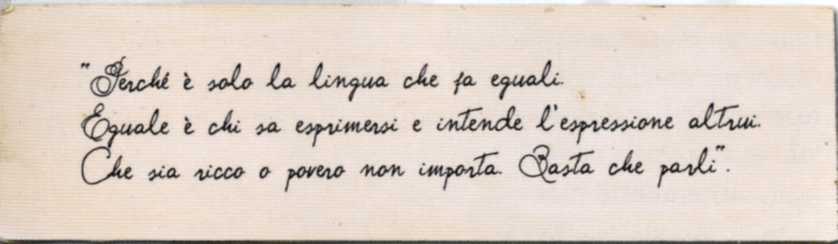 "Perché è solo la lingua che fa eguali.
Eguale è chi sa esprimersi e intende l'espressione altrui.
Che sia ricco o povero non importa. Basta che parli".